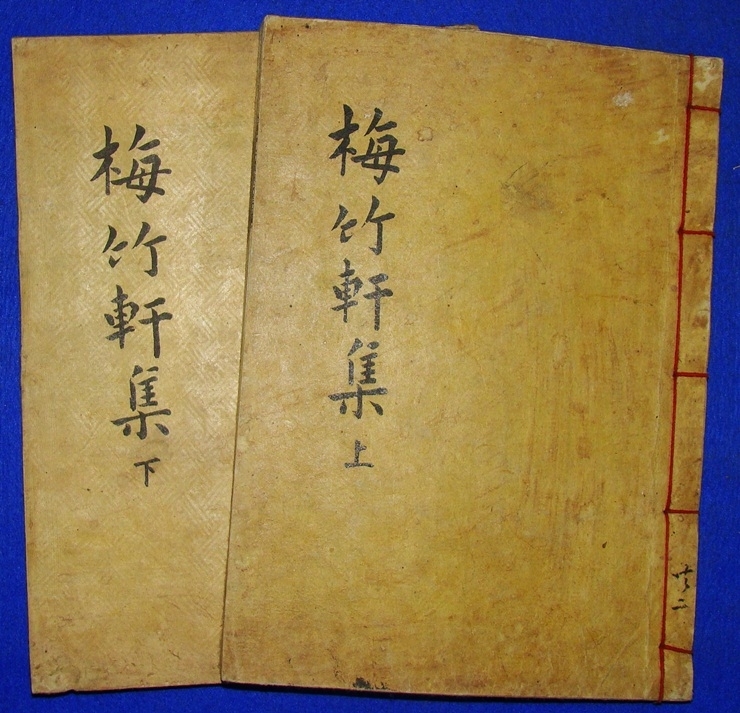 梅竹軒集 上
共二
梅竹軒集 下